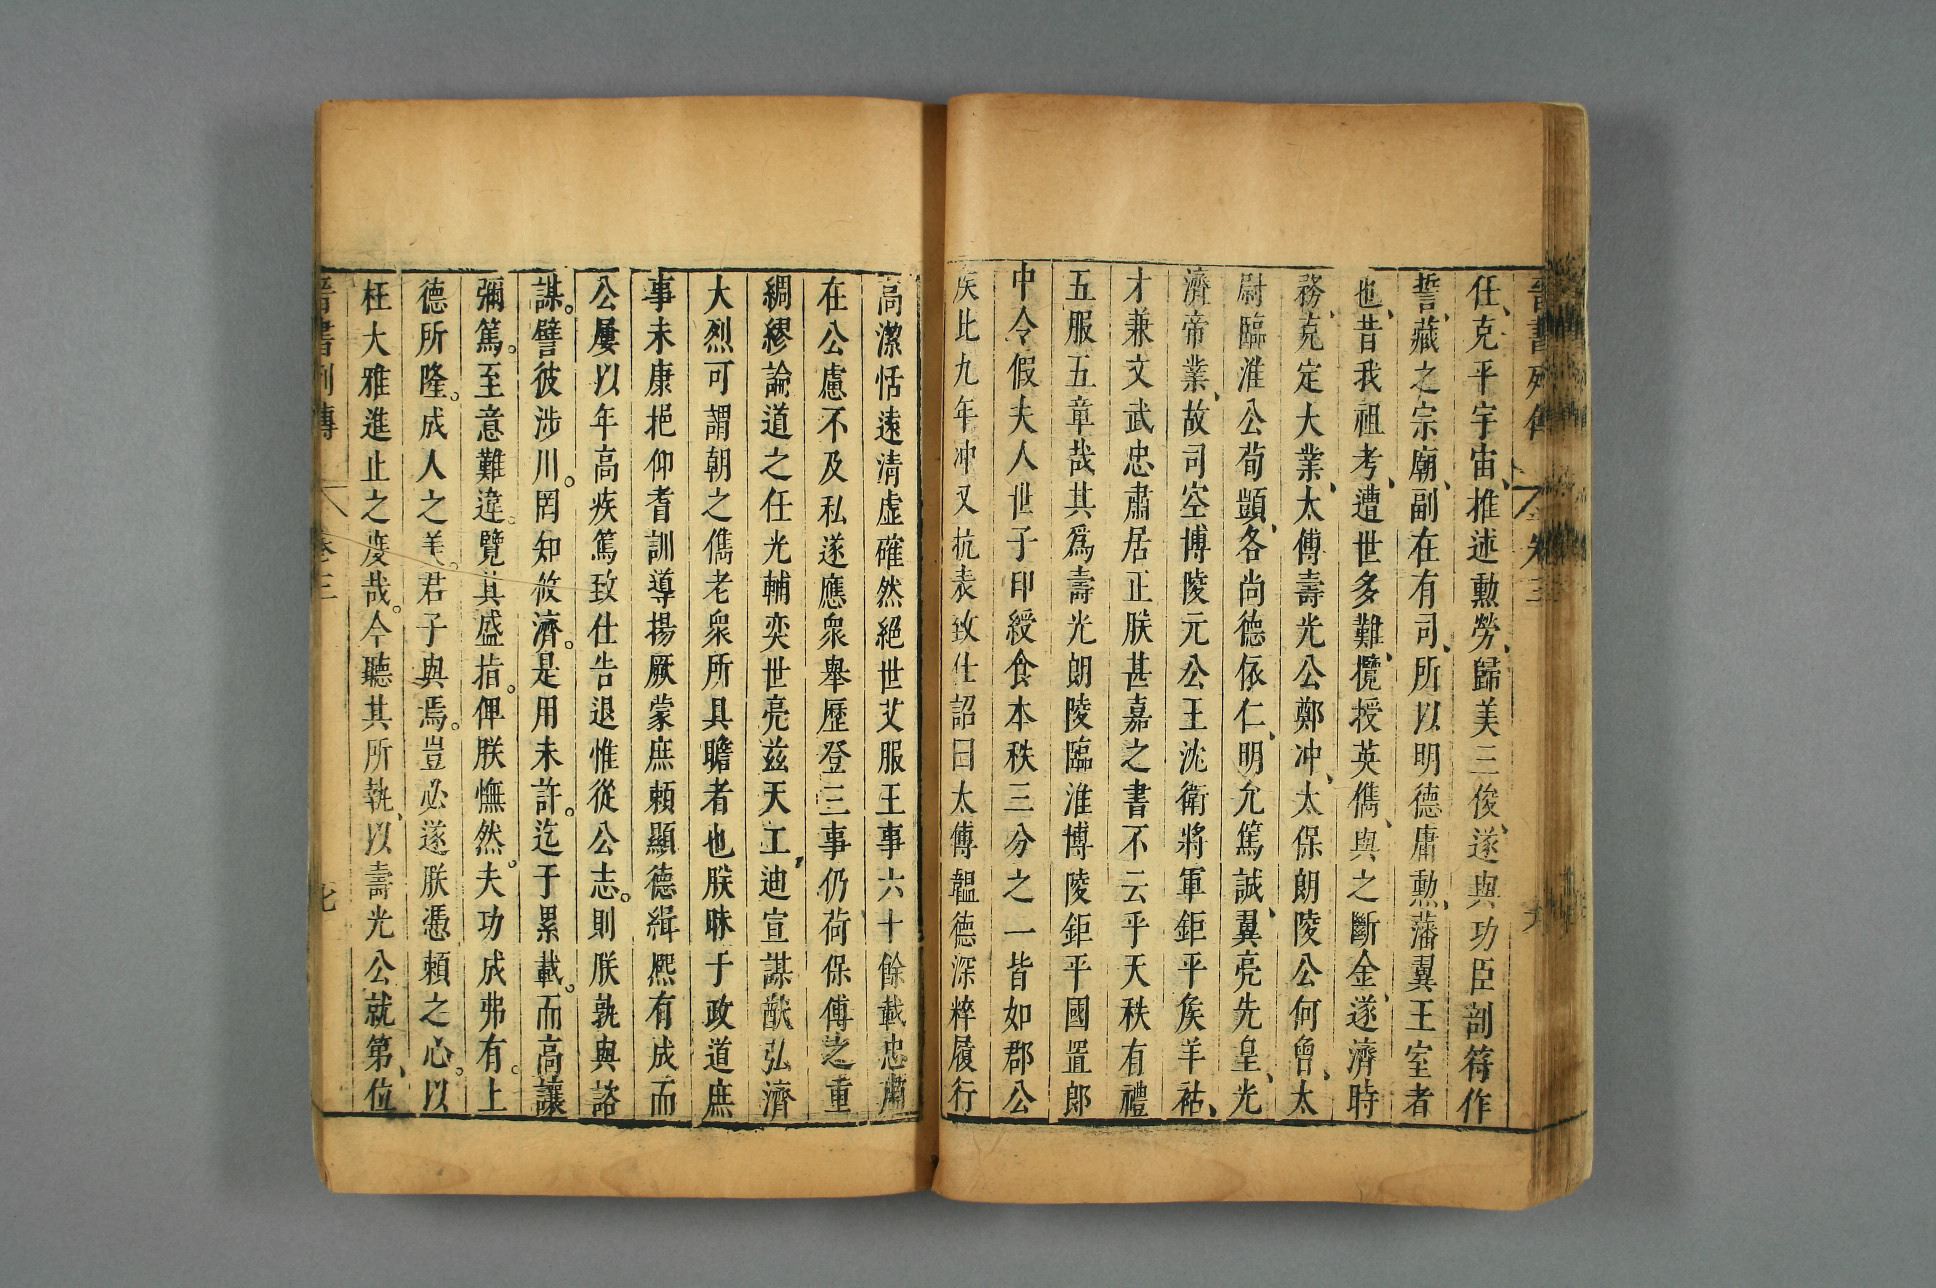 晉書列傳 卷三 六
任、克平宇宙、推述勲勞、歸美三俊、遂與功臣剖符作
誓、藏之宗廟、副在有司、所以明德庸勲、藩翼王室者
也、昔我祖考、遭世多難、攬授英儁、與之斷金、遂濟時
務、克定大業、太傅壽光公鄭冲、太保朗陵公何曾、太
尉臨淮公荀顗、各尚德依仁、明允篤誠、翼亮先皇、光
濟帝業、故司空博陵元公王沈衛將軍鉅平矦羊祜、
才兼文武忠肅居正朕甚嘉之書不云乎天秩有禮
五服五章哉其爲壽光朗陵臨淮博陵鉅平國置郎
中令假夫人世子印綬食本秩三分之一皆如郡公
矦比九年冲又抗表致仕詔曰太傅韞德深粹履行
高潔恬遠清虛確然絕世艾服王事六十餘載忠肅
在公慮不及私遂應衆舉歷登三事仍荷保傅之重
綢繆論道之任光輔奕世亮兹天工、迪宣謀猷弘濟
大烈可謂朝之儁老衆所具瞻者也朕昧于政道庶
事未康挹仰耆訓導揚厥蒙庶賴顯德緝熙有成而
公屢以年高疾篤致仕告退惟從公志。則朕孰與諮
謀。譬彼涉川。罔知攸濟。是用未許。迄于累載。而高讓
彌篤。至意難違。覽其盛指。俾朕憮然。夫功成弗有。上
德所隆。成人之美。君子與焉。豈必遂朕憑賴之心。以
枉大雅進止之度哉。今聽其所執、以壽光公就第、位
晉書列傳 卷三 七